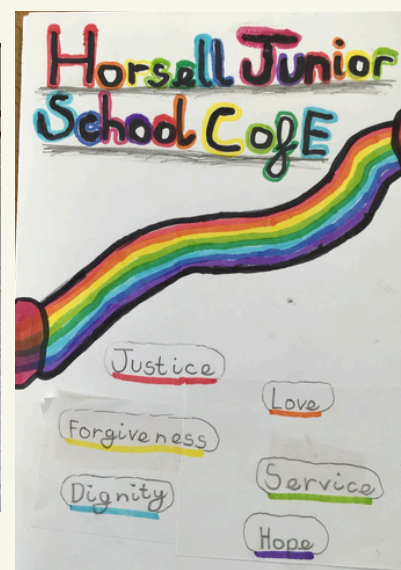 Horsell Junior
School CofE
Justice
Love
Forgiveness
Service
Dignity
Hope